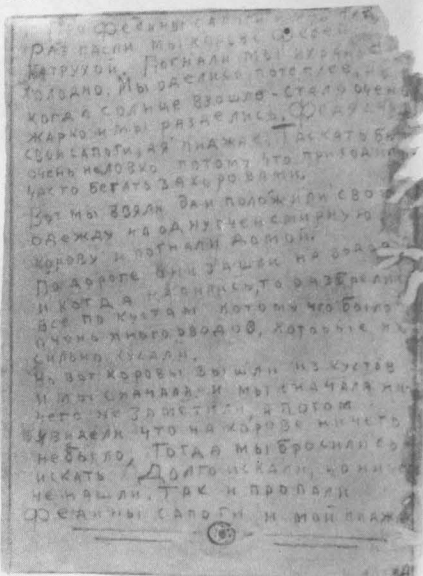 Федины сапоги и мой
Раз пасли мы коров с
Петрухой. Погнали мы их рано
холодно. Мы оделись потеплее, но
когда солнце взошло - стало очень
жарко и мы разделись. Федя снял
свои сапоги, а я пиджак. Таскать бы
очень неловко потому что приходил
часто бегать за коровами.
Вот мы взяли да и положили свою
одежду на одну очень смирную
корову и погнали домой.
По дороге они зашли на водо
и когда напились, то разбрелись
все по кустам потому что было
очень много оводов, которые их
сильно кусали.
Но вот коровы вышли из кустов
и мы сначала и мы сначала ни
чего не заметили, а потом
увидели что на корове ничего
небыло. Тогда мы бросились
искать. Долго искали, но ниче
не нашли. Так и пропали
Федины сапоги и мой пиджа